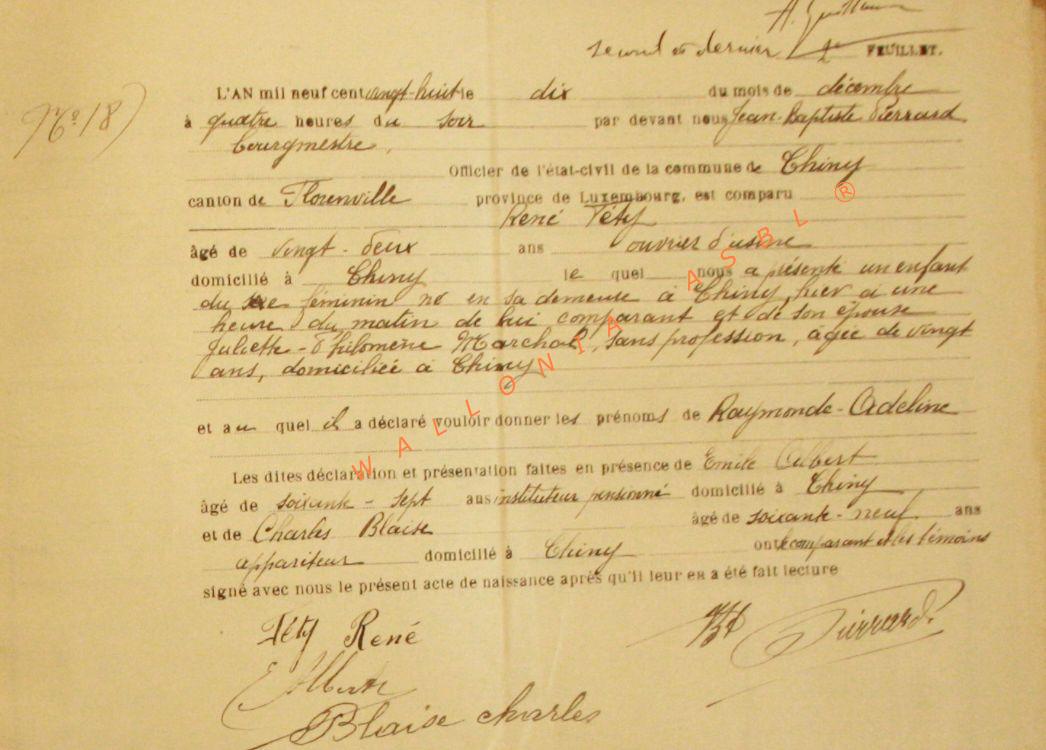 second et dernier FEUILLET.
N° 18
L'AN mil neuf cent vingt-huit le dix du mois de décembre
à quatre heures du soir par devant nous Jean-Baptiste Pierrard
bourgmestre,
Officier de l'état-civil de la commune de Chiny
canton de Florenville province de Luxembourg, est comparu
René Féty
âgé de vingt-deux ans ouvrier d'usine
domicilié à Chiny le quel nous a présenté un enfant
du sexe féminin né en sa demeure à Chiny, hier à une
heure du matin de lui comparant et de son épouse
Juliette-Philomène Marchal, sans profession, âgée de vingt
ans, domiciliée à Chiny
et au quel il a déclaré vouloir donner les prénoms de Raymonde-Adeline
Les dites déclaration et présentation faites en présence de Emile Albert
âgé de soixante-sept ans instituteur pensionné domicilié à Chiny
et de Charles Blaise âgé de soixante-neuf ans
appariteur domicilié à Chiny ont le comparant et les témoins
signé avec nous le présent acte de naissance après qu'il leur en a été fait lecture
Féty René
Pierrard
E Albert
Blaise Charles
WALLONIA ASBL ®